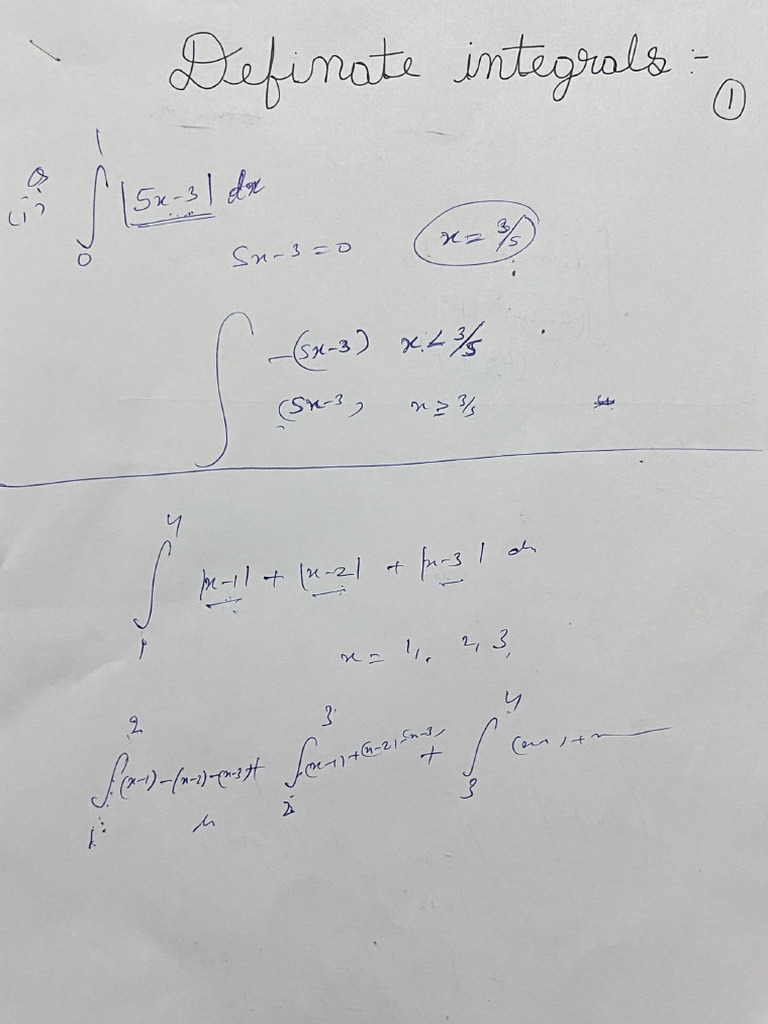 Definate integrals :-
①
Q
(i) ∫₀¹ |5x-3| dx
5x-3=0   x = 3/5
-(5x-3)   x < 3/5
(5x-3,   x ≥ 3/5
∫₁⁴ |x-1| + |x-2| + |x-3| dx
x = 1, 2, 3,
∫₁² (x-1)-(x-2)-(x-3)+ ∫₂³ (x-1)+(x-2)-(x-3, + ∫₃⁴